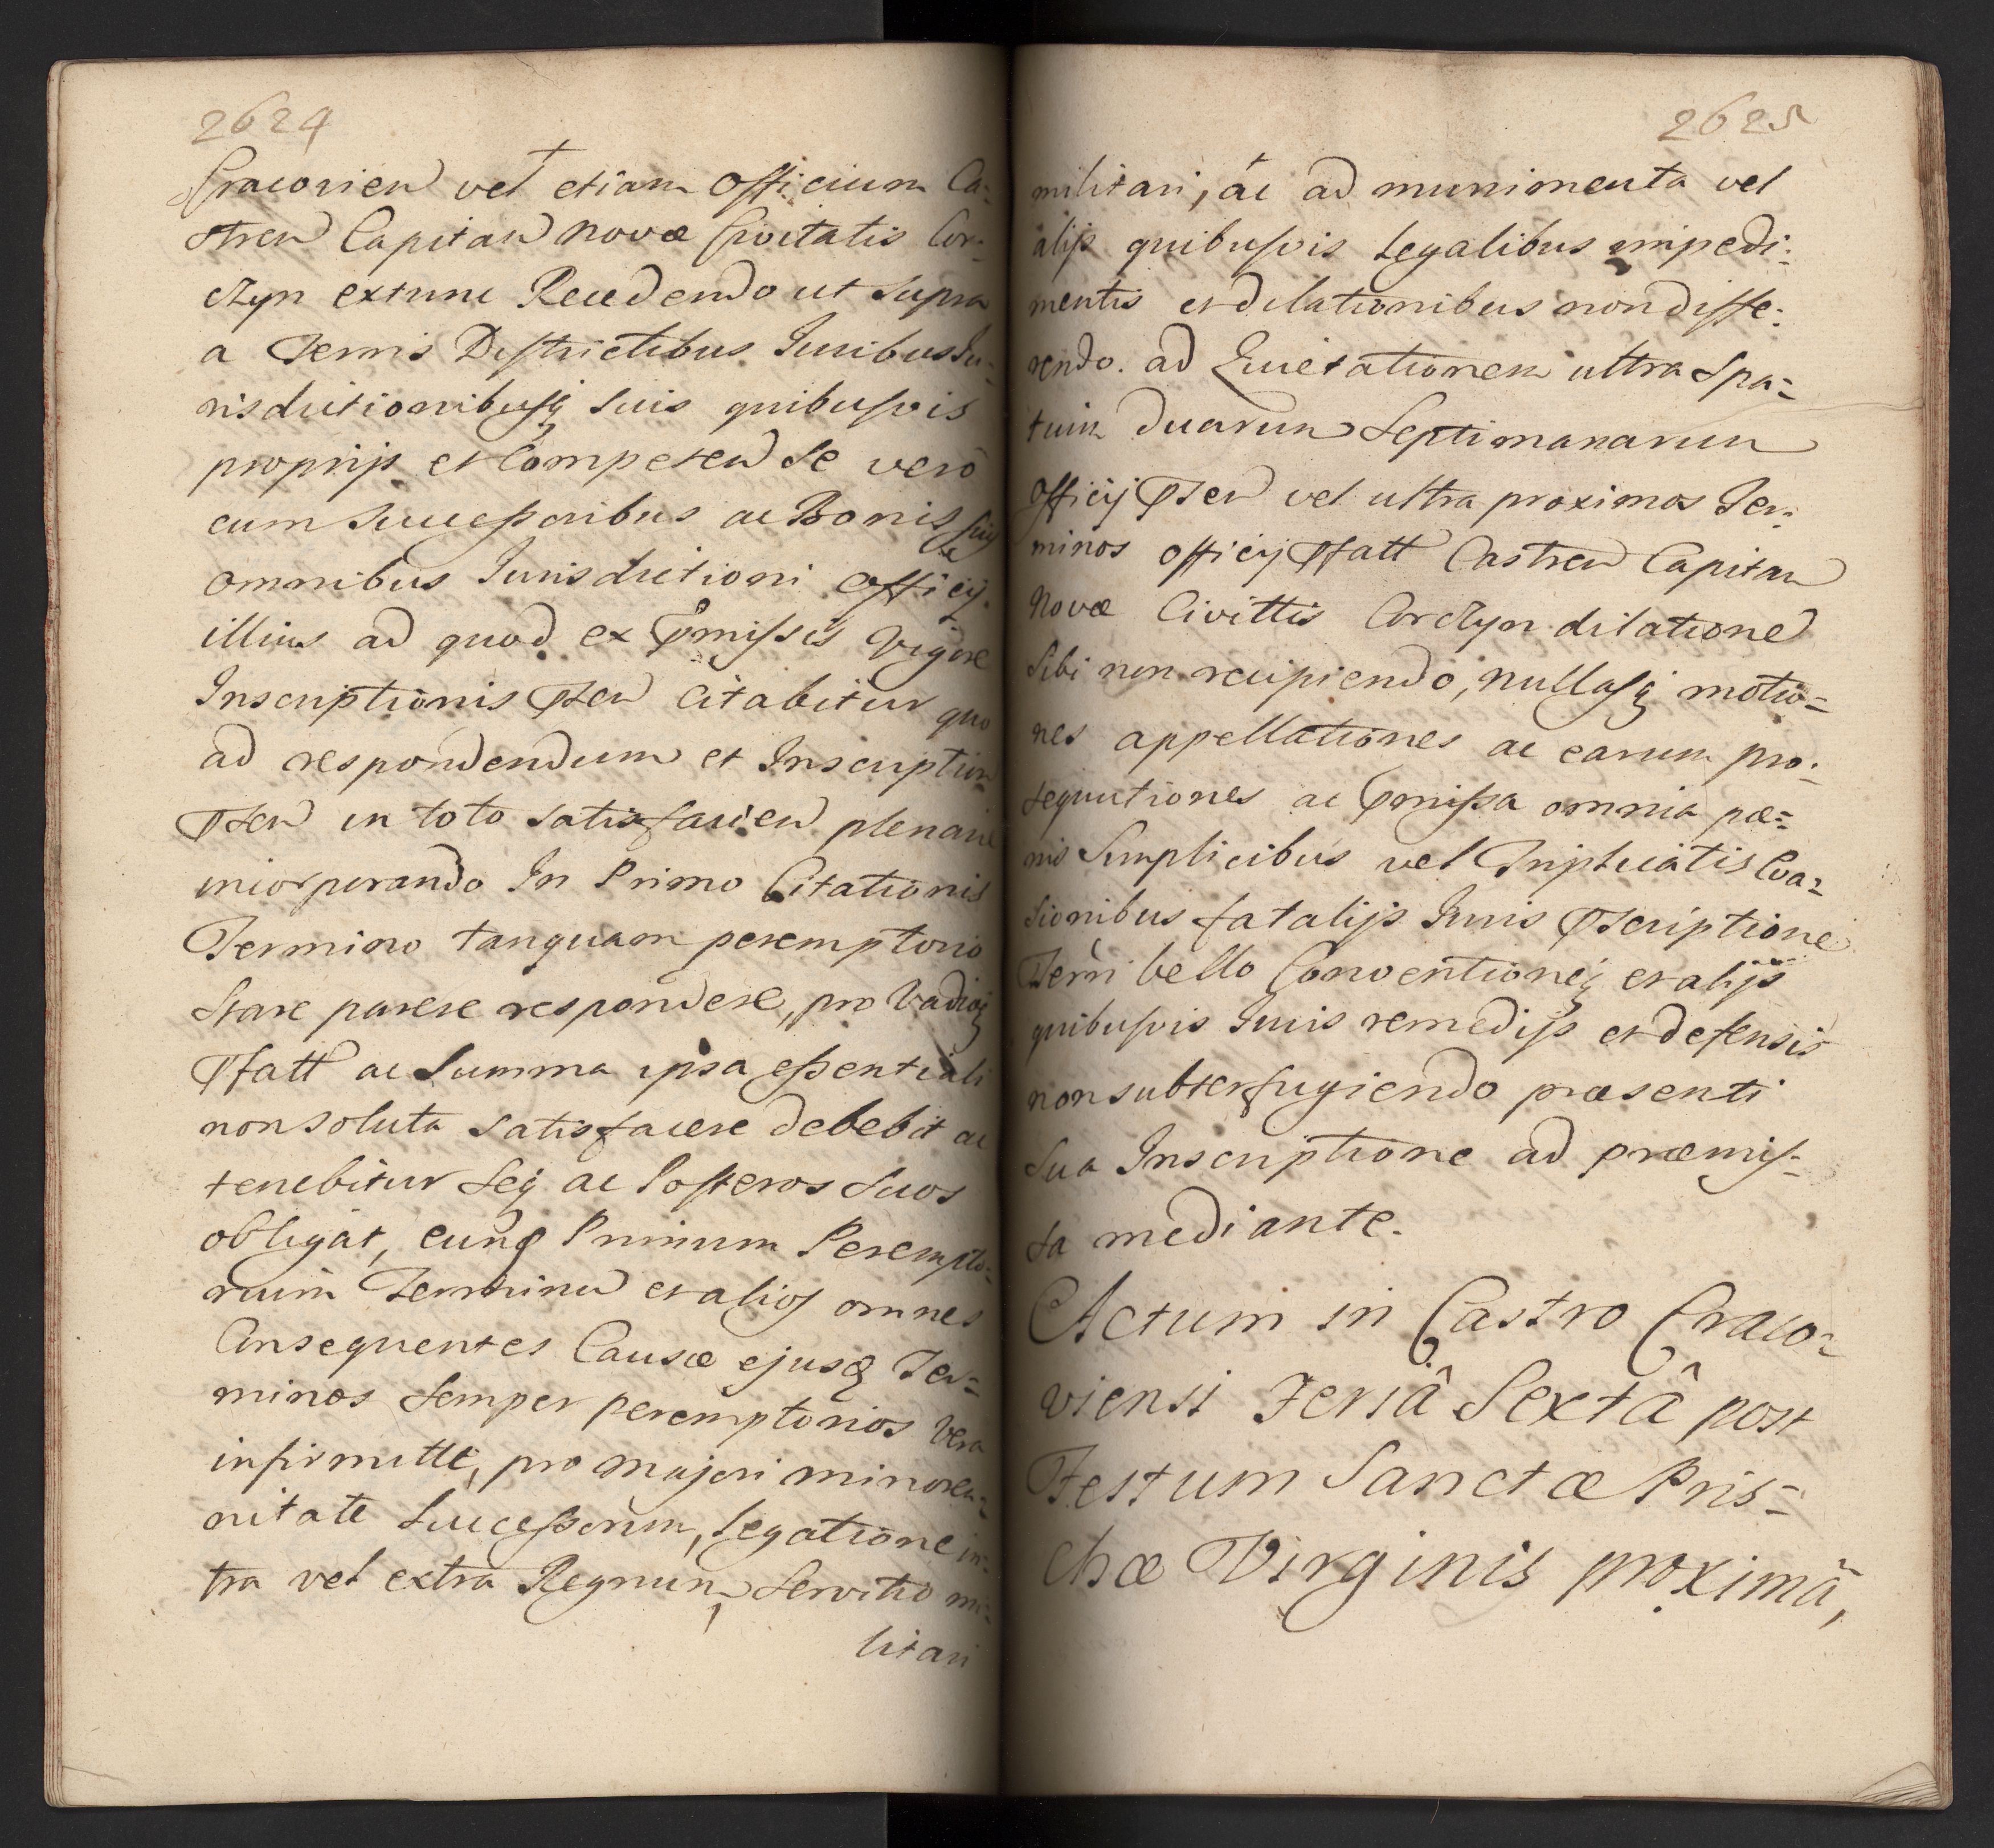 2624
Cracovien vel etiam Officium Ca=
stren Capitan Novæ Civitatis Cor=
czyn extunc Recedendo ut supra
a Terris Districtibus Juribus Ju=
risdictionibusq suis quibusvis
proprijs et Competen Se vero
cum Successoribus ac Bonis suis
omnibus Jurisdictioni Officij
illius ad quod ex Pmissis Vigore
Inscriptionis Pten Citabitur quo
ad respondendum et Inscription
Pten in toto satisfacien plenarie
incorporando In Primo Citationis
Termino tanquam peremptorio
Stare parere respondere, pro Vadioq
Pfatt ac Summa ipsa essentiali
non soluta satisfacere debebit ac
tenebitur Seq ac Posteros Suos
obligat, eunq Primum Perempto=
rium Terminu et alios omnes
Consequentes Causæ ejusq Ter=
minos semper peremptorios vera
infirmitte, pro majori minoren=
nitate Successorum, Legatione in=
tra vel extra Regnum, Servitio mi=
litari
2625
militari, ac ad munimenta vel
alijs quibusvis Legalibus impedi=
mentis et dilationibus non diffe=
rendo. ad Quietationem ultra Spa=
tium duarum Septimanarum
Officij Pten vel ultra proximos Ter=
minos officij Pfatt Castren Capitan
Novæ Civittis Corczyn dilatione
Sibi non recipiendo, nullasq motio=
nes appellationes ac earum pro=
sequutiones ac Pmissa omnia pæ=
nis Simplicibus vel Triplicatis Eva=
sionibus fatalijs Juris Pscriptione
Terri bello Conventioneq et alijs
quibusvis Juris remedijs et defensis
non subterfugiendo præsenti
Sua Inscriptione ad præmis=
sa mediante.
Actum in Castro Craco=
viensi Feriâ Sextâ post
Festum Sanctæ Pris=
chæ Virginis proximâ,